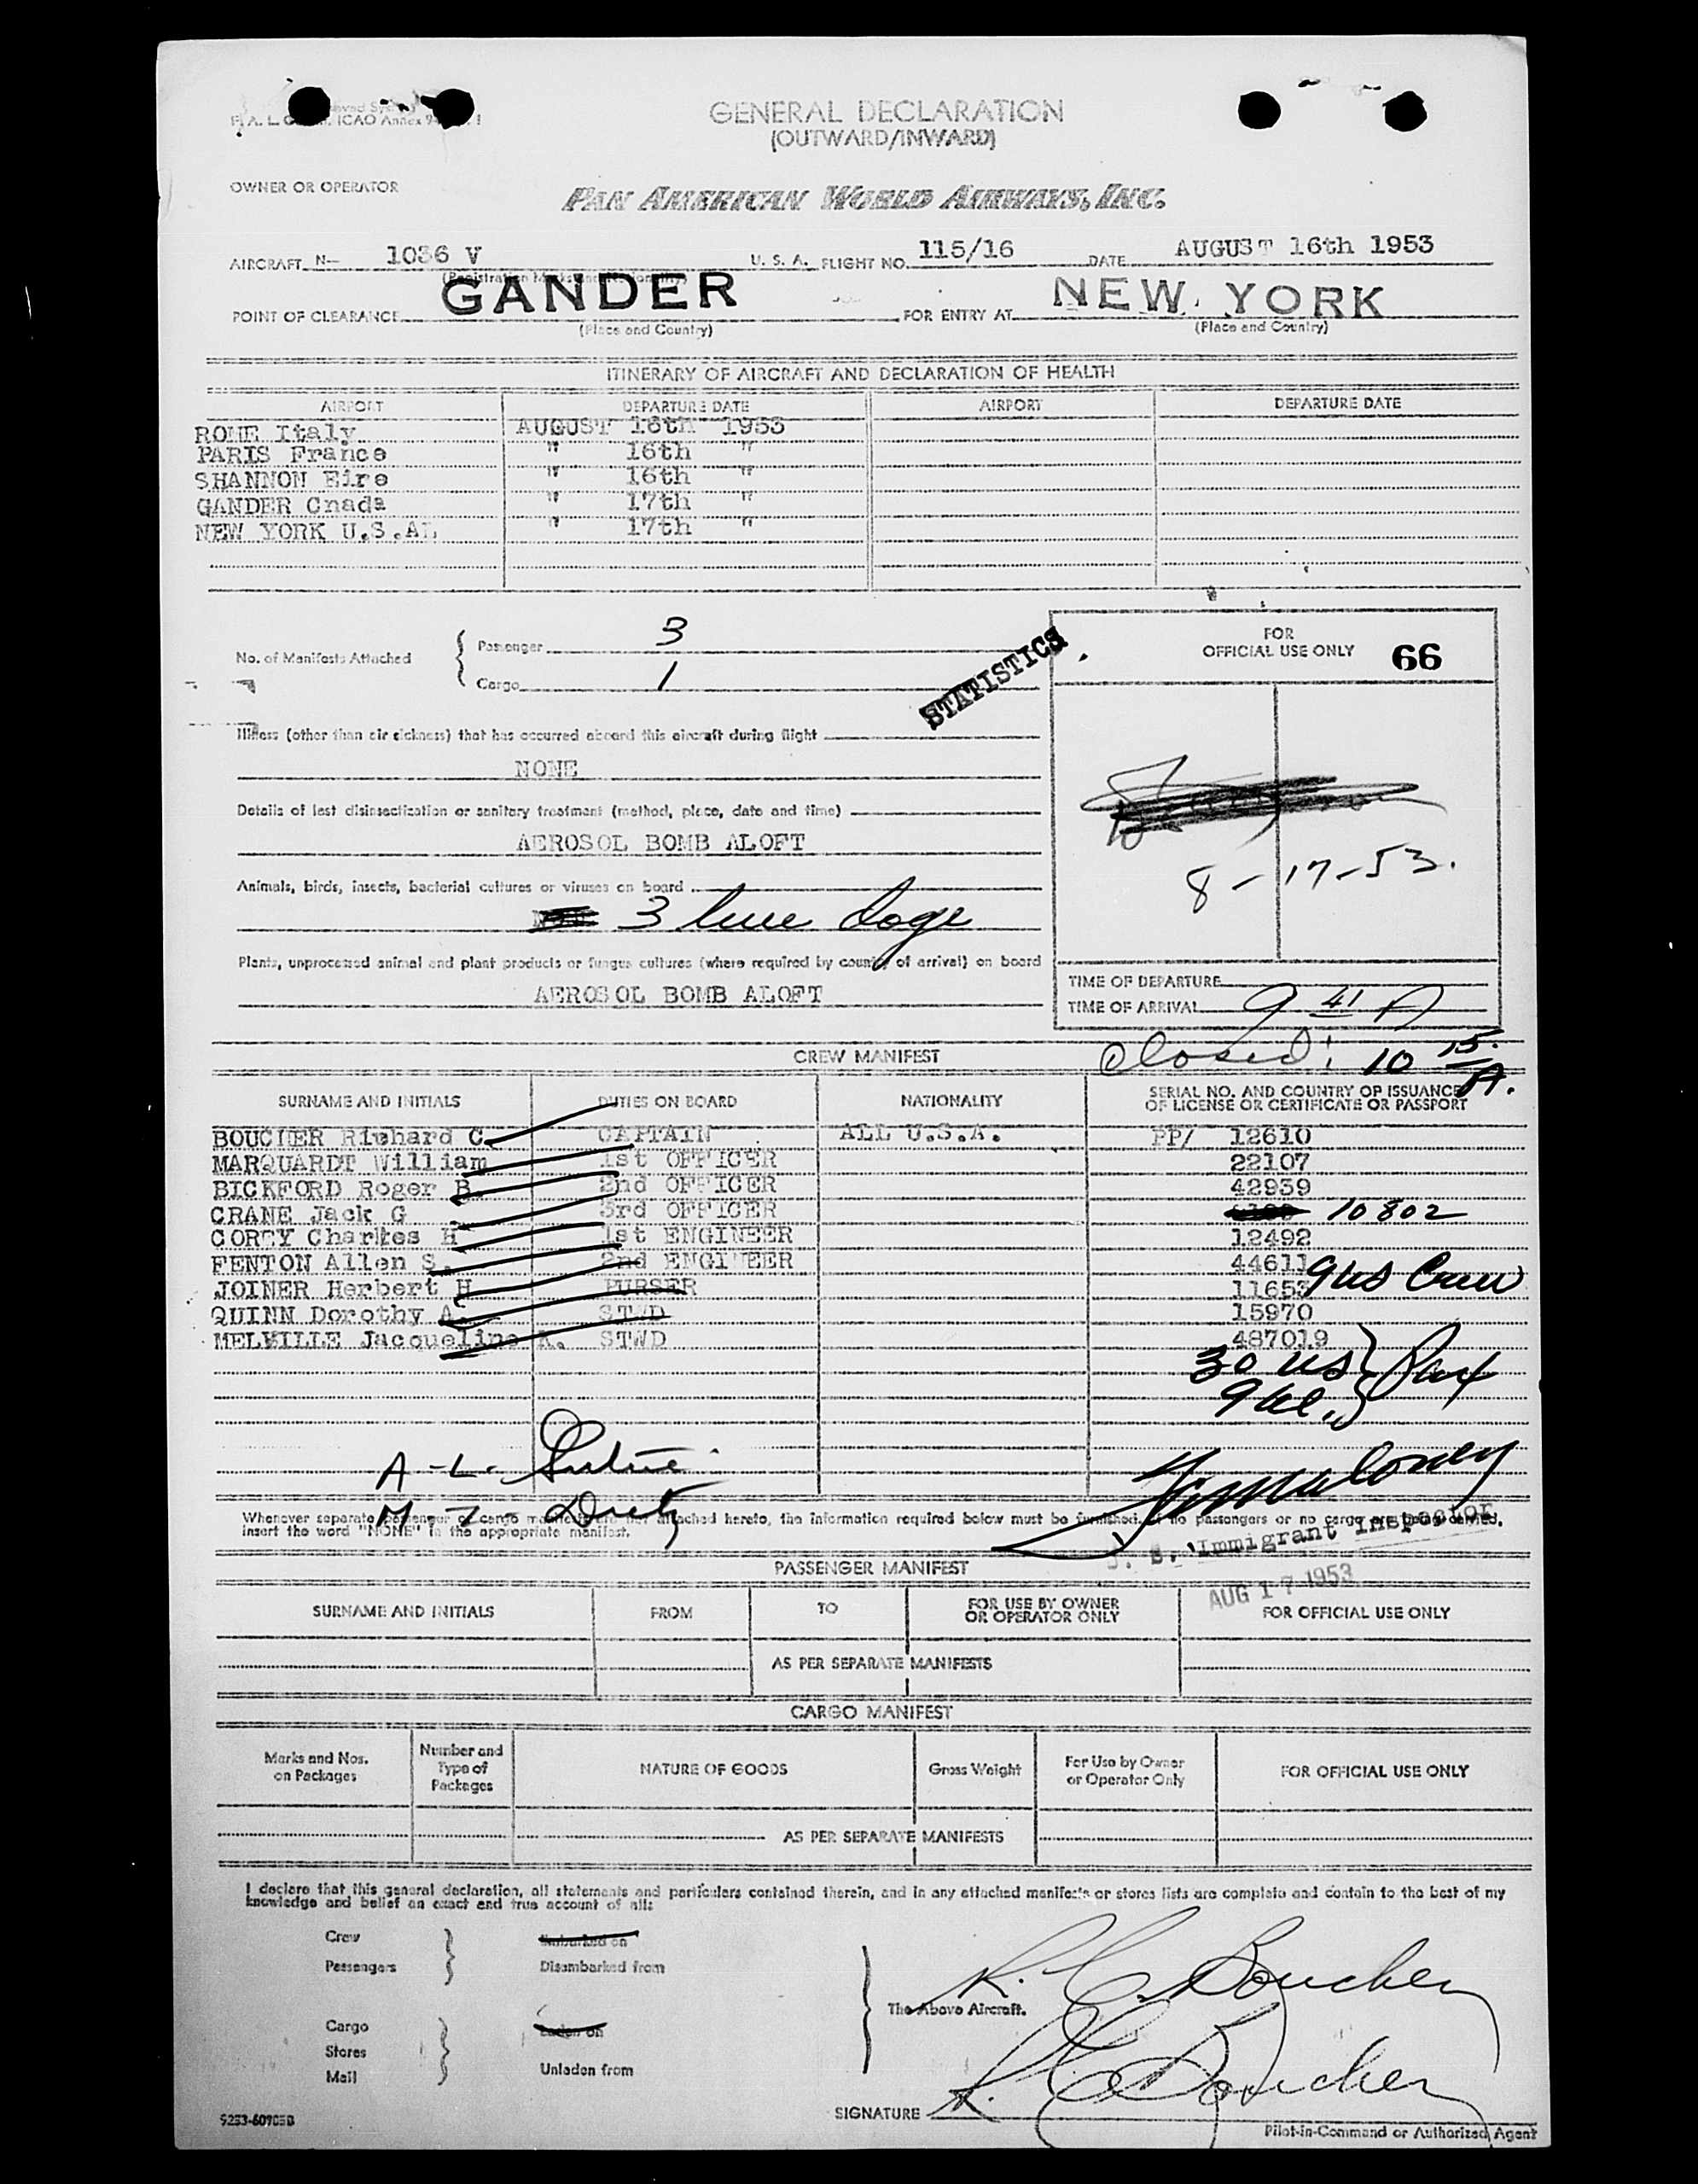 ICAO Annex 9
GENERAL DECLARATION
(OUTWARD/INWARD)
OWNER OR OPERATOR
PAN AMERICAN WORLD AIRWAYS, INC.
AIRCRAFT N— 1036 V U. S. A. FLIGHT NO. 115/16 DATE AUGUST 16th 1953
POINT OF CLEARANCE GANDER FOR ENTRY AT NEW YORK
(Place and Country) (Place and Country)
ITINERARY OF AIRCRAFT AND DECLARATION OF HEALTH
AIRPORT DEPARTURE DATE AIRPORT DEPARTURE DATE
ROME Italy AUGUST 16th 1953
PARIS France " 16th "
SHANNON Eire " 16th "
GANDER Cnada " 17th "
NEW YORK U.S.A. " 17th "
No. of Manifests Attached
Passenger 3
Cargo 1
STATISTICS
FOR
OFFICIAL USE ONLY 66
Illness (other than air sickness) that has occurred aboard this aircraft during flight
NONE
Details of last disinsectization or sanitary treatment (method, place, date and time)
AEROSOL BOMB ALOFT
8-17-53.
Animals, birds, insects, bacterial cultures or viruses on board
3 live dogs
Plants, unprocessed animal and plant products or fungus cultures (where required by country of arrival) on board
AEROSOL BOMB ALOFT
TIME OF DEPARTURE
TIME OF ARRIVAL 9 41 A
closed: 10 15 A.
CREW MANIFEST
SURNAME AND INITIALS DUTIES ON BOARD NATIONALITY SERIAL NO. AND COUNTRY OF ISSUANCE OF LICENSE OR CERTIFICATE OR PASSPORT
BOUCHER Richard C. CAPTAIN ALL U.S.A. PP/ 12610
MARQUARDT William 1st OFFICER 22107
BICKFORD Roger B. 2nd OFFICER 42939
CRANE Jack G 3rd OFFICER 10802
CORTY Charles H 1st ENGINEER 12492
FENTON Allen S. 2nd ENGINEER 44611
JOINER Herbert H PURSER 11653 9 US Crew
QUINN Dorothy A. STWD 15970
MELVILLE Jacqueline K. STWD 487019
30 US
9 al. } Pax
A - L.
M Z - Dietz
Whenever separate passenger or cargo manifests are not attached hereto, the information required below must be furnished. If no passengers or no cargo are being carried,
insert the word "NONE" in the appropriate manifest.
U. S. Immigrant Inspector
AUG 17 1953
PASSENGER MANIFEST
SURNAME AND INITIALS FROM TO FOR USE BY OWNER OR OPERATOR ONLY FOR OFFICIAL USE ONLY
AS PER SEPARATE MANIFESTS
CARGO MANIFEST
Marks and Nos. on Packages Number and Type of Packages NATURE OF GOODS Gross Weight For Use by Owner or Operator Only FOR OFFICIAL USE ONLY
AS PER SEPARATE MANIFESTS
I declare that this general declaration, all statements and particulars contained therein, and in any attached manifests or stores lists are complete and contain to the best of my
knowledge and belief an exact and true account of all:
Crew Embarked on
Passengers Disembarked from
R. C. Boucher
The Above Aircraft.
Cargo Laden on
Stores
Mail Unladen from
R. C. Boucher
SIGNATURE
Pilot-in-Command or Authorized Agent